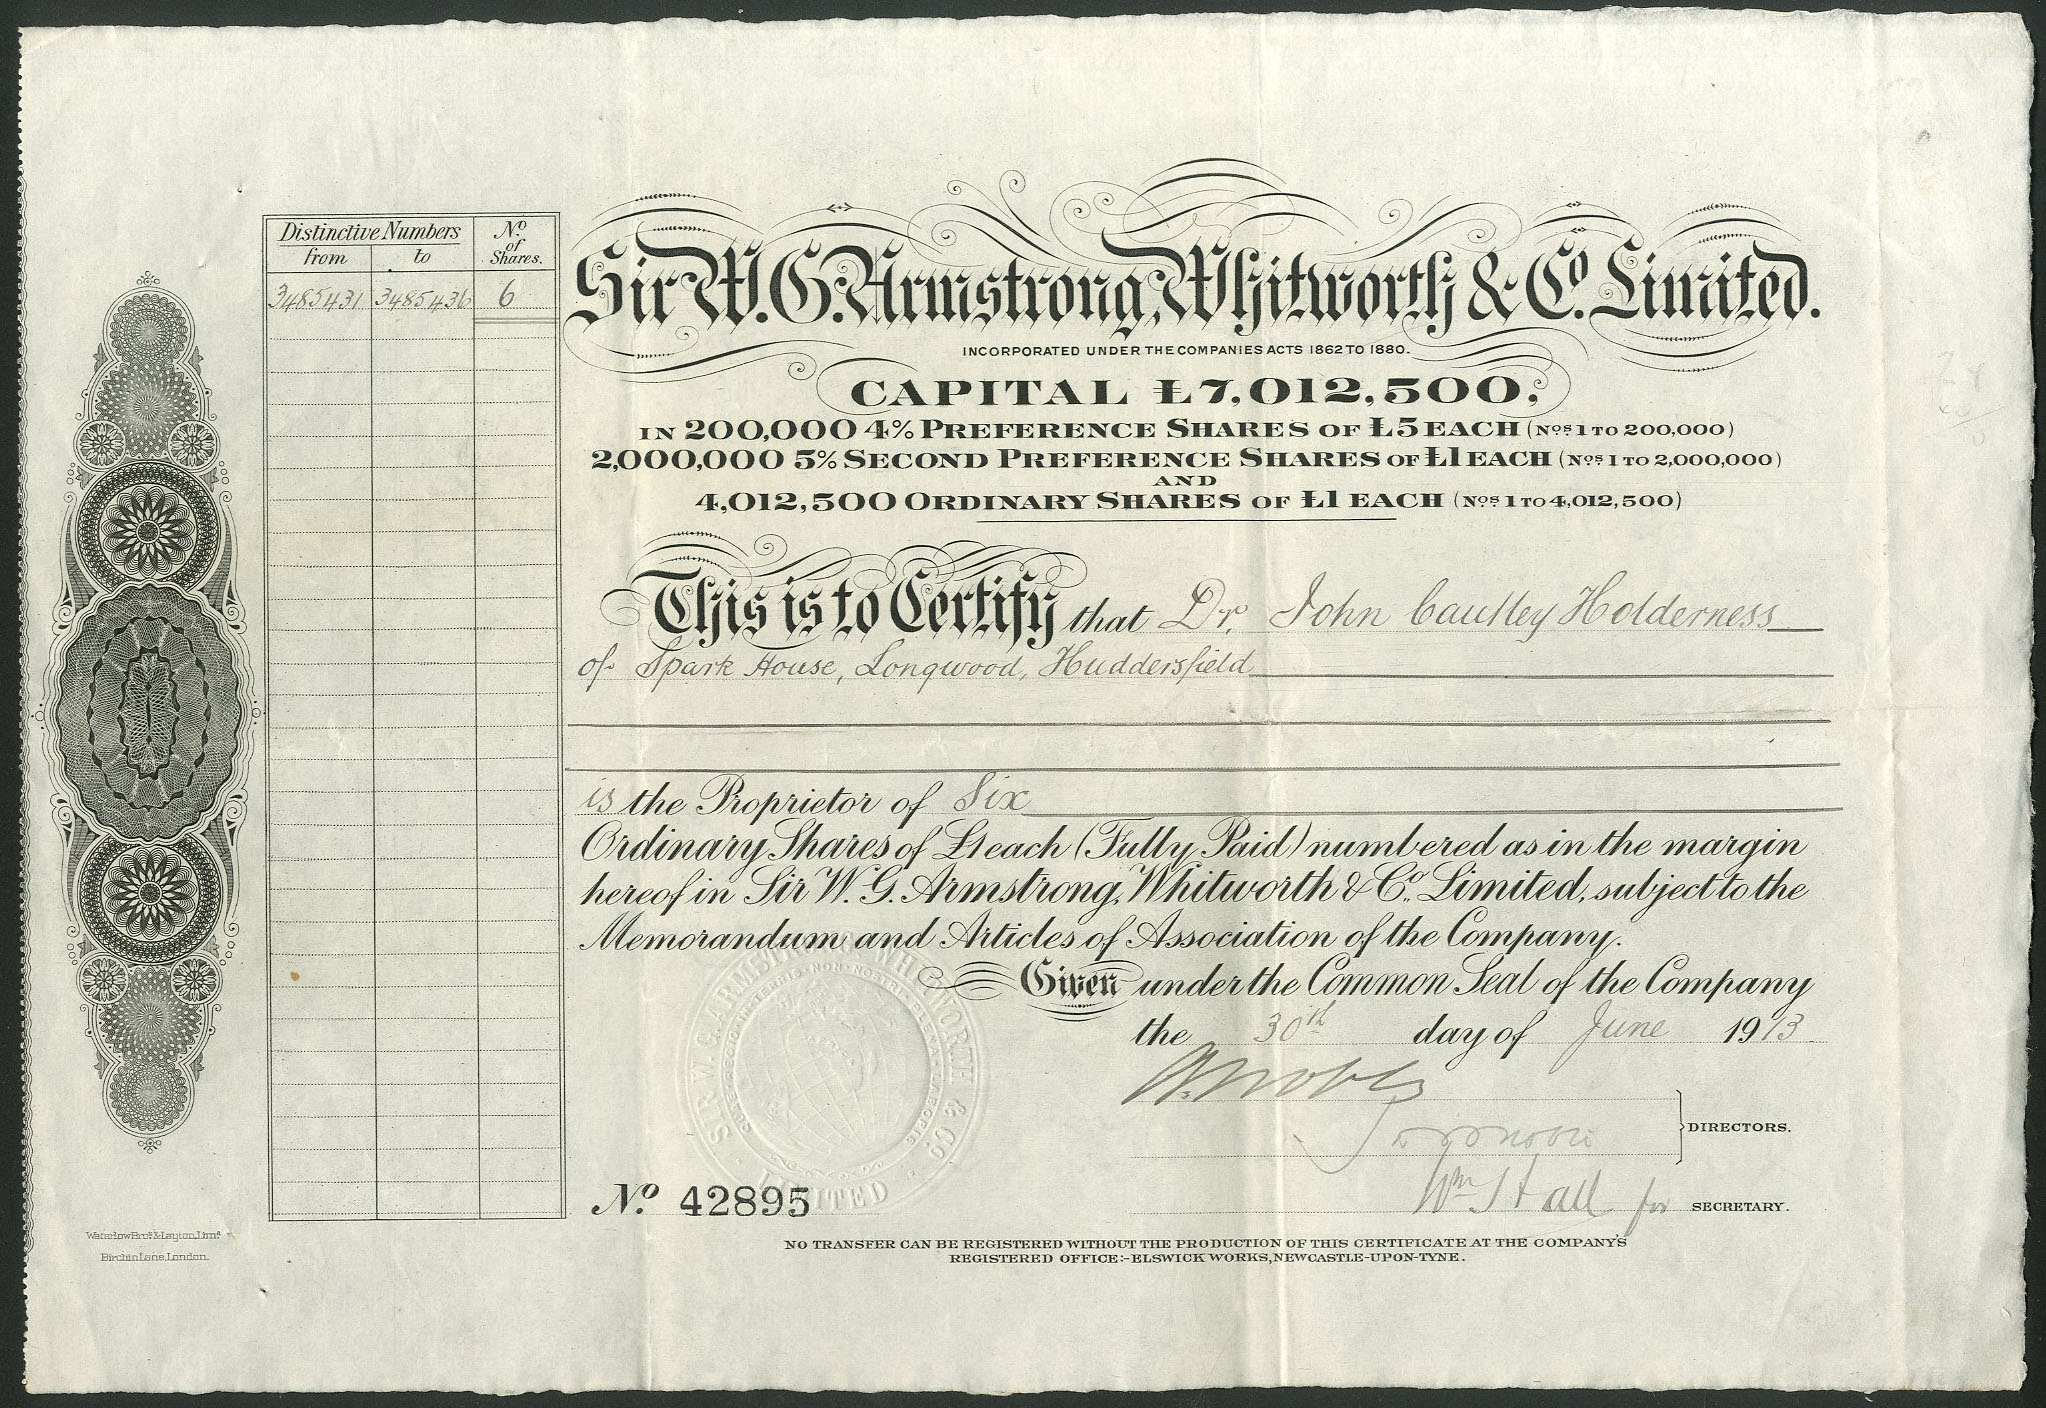 Distinctive Numbers
from to
Nº of Shares.
3485431 3485436 6
Sir W. G. Armstrong, Whitworth & Cº. Limited.
INCORPORATED UNDER THE COMPANIES ACTS 1862 TO 1880.
CAPITAL £7,012,500,
IN 200,000 4% PREFERENCE SHARES OF £5 EACH (Nos. 1 TO 200,000)
2,000,000 5% SECOND PREFERENCE SHARES OF £1 EACH (Nos. 1 TO 2,000,000)
AND
4,012,500 ORDINARY SHARES OF £1 EACH (Nos. 1 TO 4,012,500)
This is to Certify that Dr. John Cautley Holderness
of Spark House, Longwood, Huddersfield
is the Proprietor of Six
Ordinary Shares of £1 each (Fully Paid) numbered as in the margin
hereof in Sir W. G. Armstrong, Whitworth & Cº., Limited, subject to the
Memorandum and Articles of Association of the Company.
Given under the Common Seal of the Company
the 30th day of June 1913
DIRECTORS.
Wm Hall for SECRETARY.
SIR W. G. ARMSTRONG WHITWORTH & Cº. LIMITED
QUAE REGIO IN TERRIS NON NOSTRI PLENA LABORIS
Nº. 42895
NO TRANSFER CAN BE REGISTERED WITHOUT THE PRODUCTION OF THIS CERTIFICATE AT THE COMPANY'S
REGISTERED OFFICE:-ELSWICK WORKS, NEWCASTLE-UPON-TYNE.
Waterlow Bros. & Layton, Limd.
Birchin Lane, London.